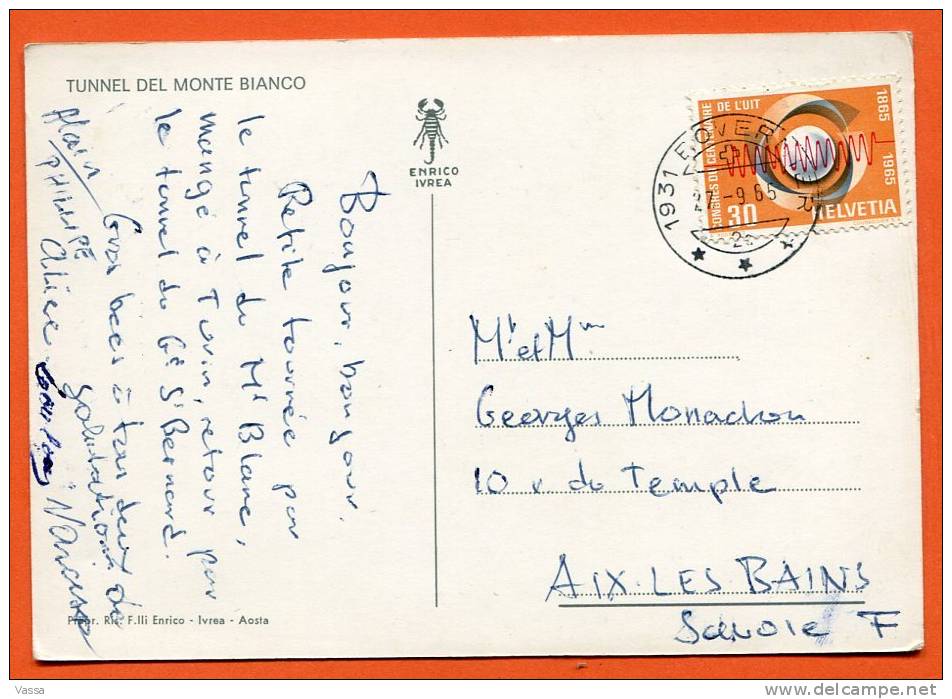 TUNNEL DEL MONTE BIANCO
ENRICO
IVREA
CONGRÈS DU CENTENAIRE DE L'UIT
1865
1965
30
HELVETIA
1931
27.-9 65
Bonjour, bonjour.
Petite tournée par
le tunnel du Mt Blanc,
mangé à Turin, retour par
le tunnel du Gd St Bernard.
Gros becs à tous deux de
Salutations
Alain
PHILIPPE
Alice
Mr et Mme
Georges Monachon
10 r. du Temple
AIX-LES BAINS
Savoie F
Propr. Ris. F.lli Enrico - Ivrea - Aosta
Vassa
http://www.delcampe.net